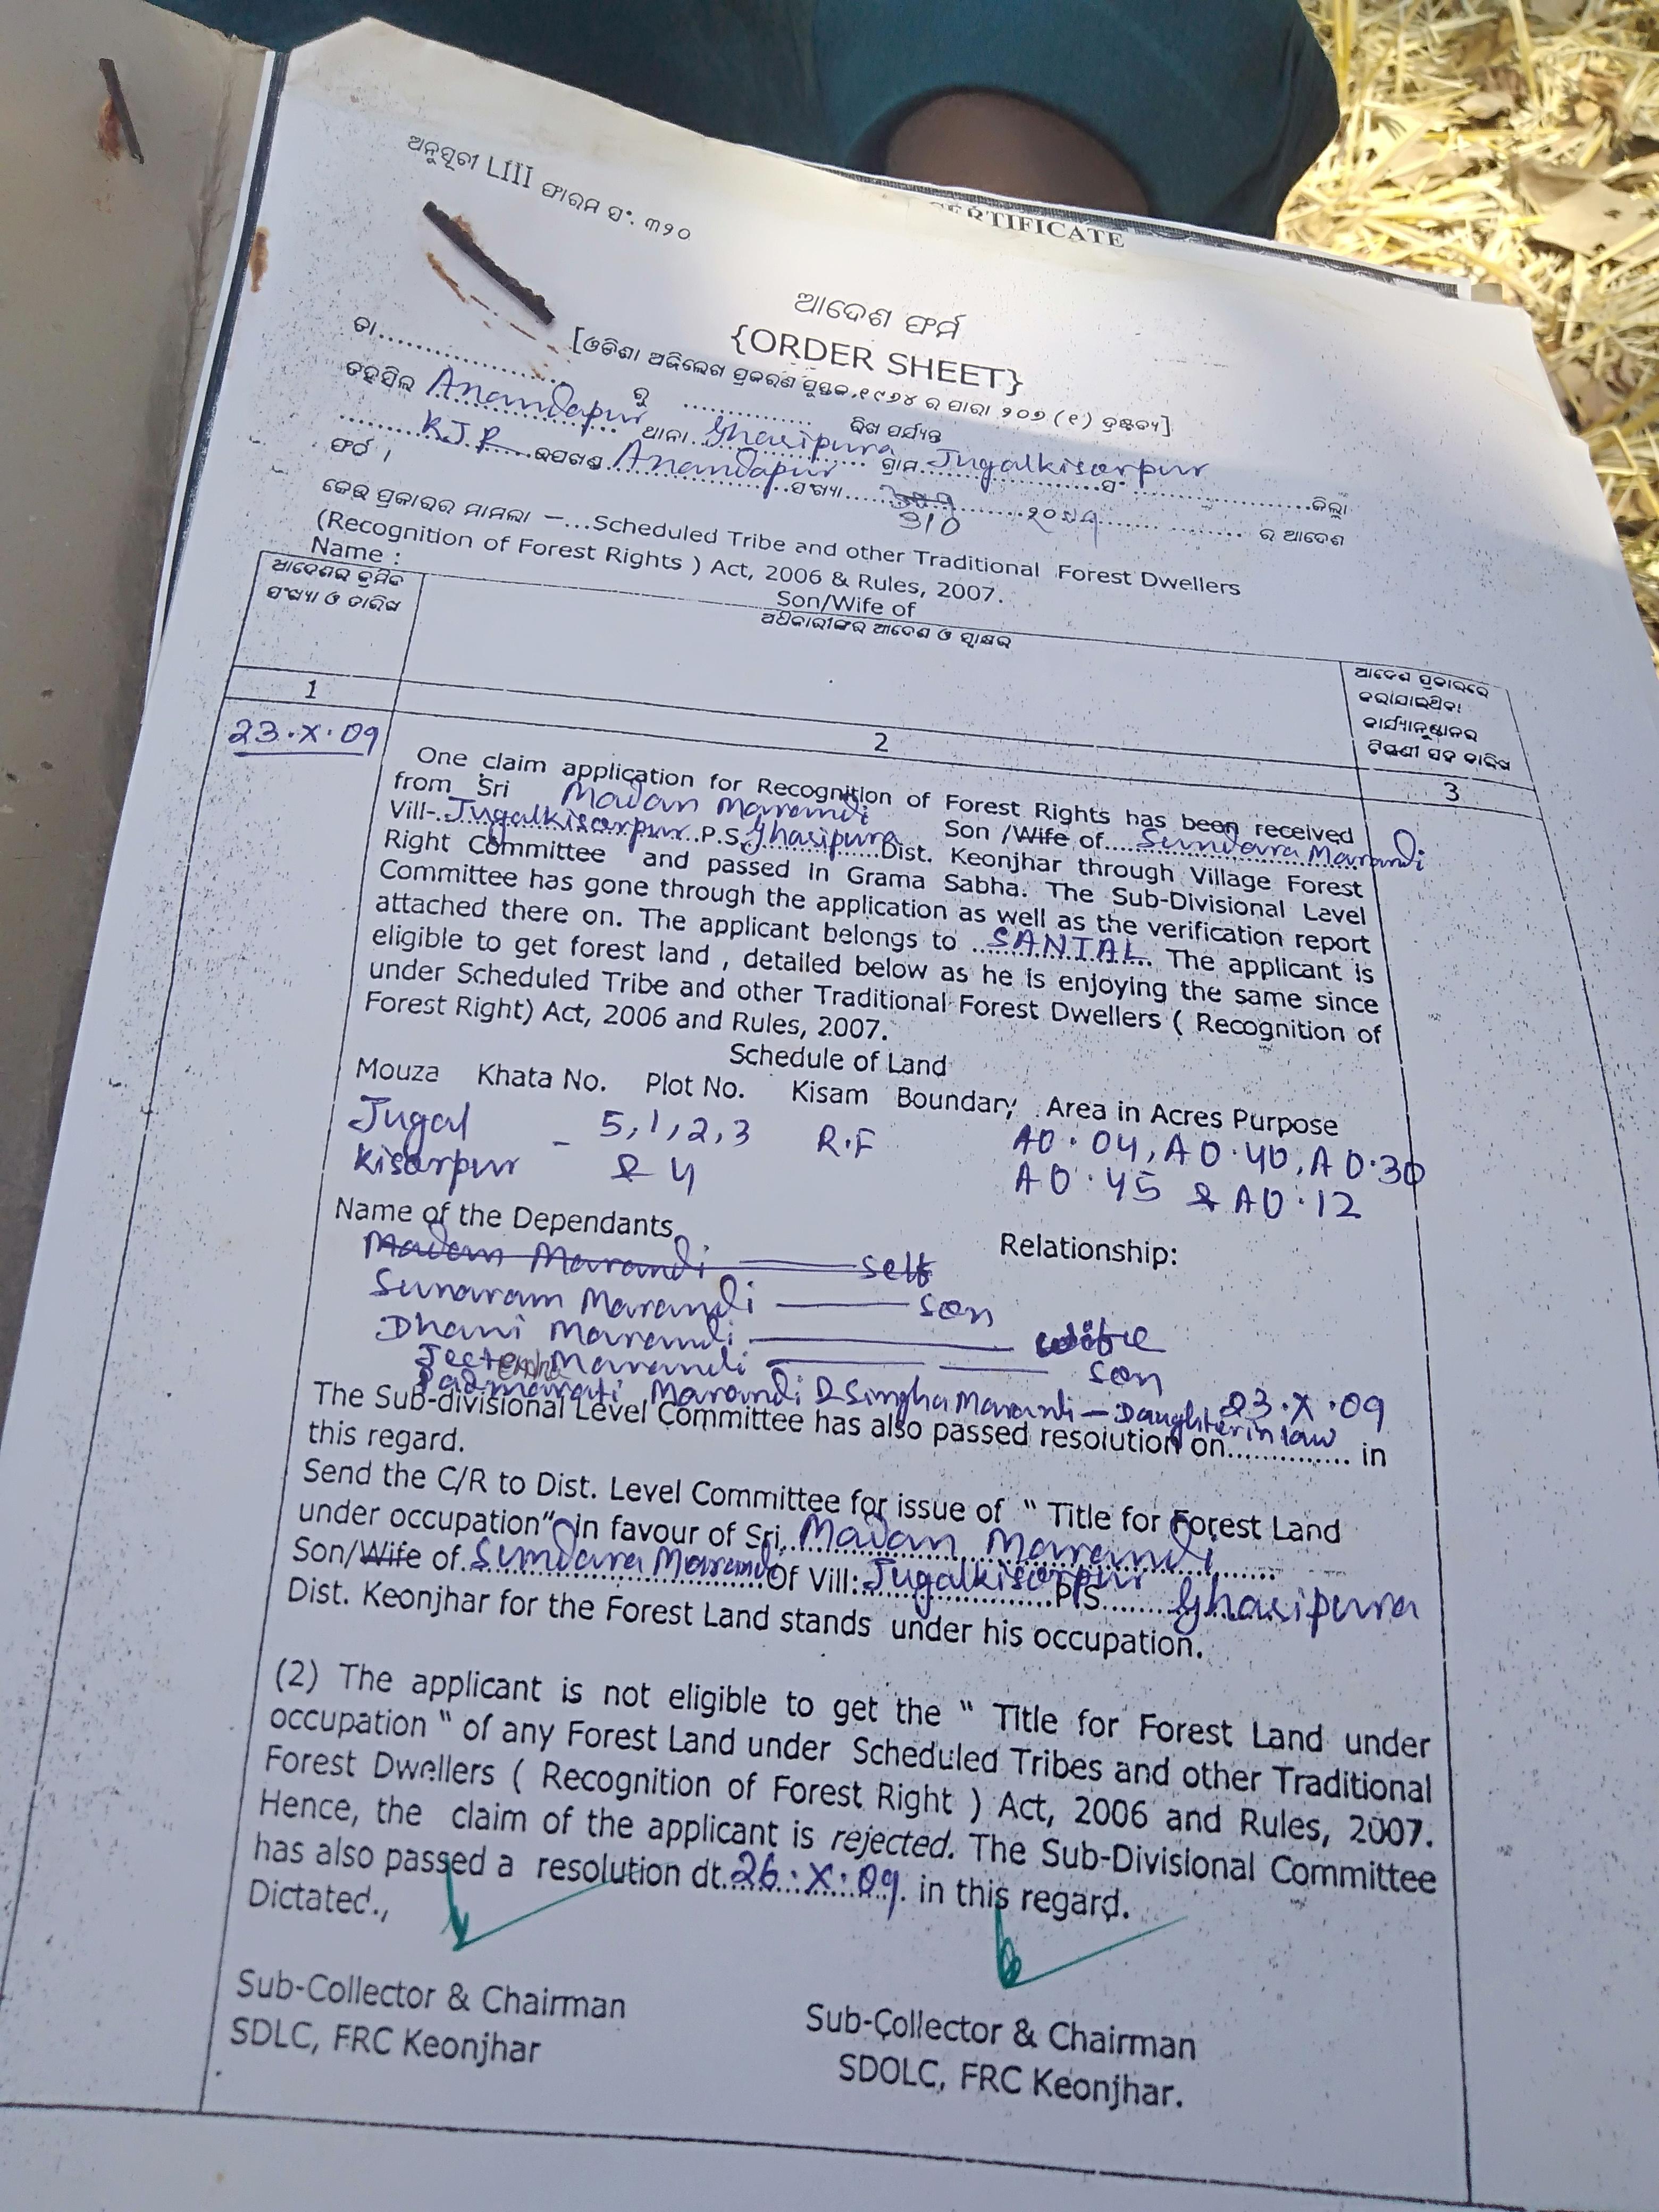 CERTIFICATE
ଅନୁସୂଚୀ LIII ଫାରମ ସଂ. ୩୨୦
ଆଦେଶ ଫର୍ମ
{ORDER SHEET}
[ଓଡିଶା ଅଭିଲେଖ ପ୍ରକରଣ ପୁସ୍ତକ,୧୯୬୪ ର ପାରା ୨୦୬ (୧) ଦ୍ରଷ୍ଟବ୍ୟ]
ତା.................... ରୁ .................. ରିଖ ପର୍ଯ୍ୟନ୍ତ
ତହସିଲ Anandapur ଥାନା Ghasipura ଗ୍ରାମ Jugalkisorpur ସଂ ....................ଜିଲ୍ଲା
KJR ଉପଖଣ୍ଡ Anandapur ସଂଖ୍ୟା 310 ର ଆଦେଶ
ଫର୍ଦ୍ଦ ।
କେଉଁ ପ୍ରକାରର ମାମଲା –...Scheduled Tribe and other Traditional Forest Dwellers
(Recognition of Forest Rights ) Act, 2006 & Rules, 2007.
Name : Son/Wife of
ଆଦେଶର କ୍ରମିକ
ସଂଖ୍ୟା ଓ ତାରିଖ
ଅଧିକାରୀଙ୍କର ଆଦେଶ ଓ ସ୍ୱାକ୍ଷର
ଆଦେଶ ପ୍ରକାରରେ
କରାଯାଇଥିବା
କାର୍ଯ୍ୟାନୁଷ୍ଠାନର
ଟିପ୍ପଣୀ ସହ ତାରିଖ
1 2 3
23.X.09
One claim application for Recognition of Forest Rights has been received
from Sri Madan Marandi Son /Wife of.... Sundara Marandi
Vill-.Jugalkisorpur..P.S.Ghasipura...Dist. Keonjhar through Village Forest
Right Committee and passed in Grama Sabha. The Sub-Divisional Level
Committee has gone through the application as well as the verification report
attached there on. The applicant belongs to ..SANTAL. The applicant is
eligible to get forest land , detailed below as he is enjoying the same since
under Scheduled Tribe and other Traditional Forest Dwellers ( Recognition of
Forest Right) Act, 2006 and Rules, 2007.
Schedule of Land
Mouza Khata No. Plot No. Kisam Boundary Area in Acres Purpose
Jugal – 5,1,2,3 R.F A0.04, A0.40, A0.30
Kisorpur & 4 A0.45 & A0.12
Name of the Dependants Relationship:
Madan Marandi — self
Sunaram Marandi — son
Dhani Marandi — wife
Marandi — son
Padmavati Marandi D Singha Marandi – Daughter in law 23.X.09
The Sub-divisional Level Committee has also passed resolution on.............. in
this regard.
Send the C/R to Dist. Level Committee for issue of “ Title for Forest Land
under occupation” in favour of Sri. Madan Marandi
Son/Wife of Sundara Marandi Of Vill: Jugalkisorpur P/S Ghasipura
Dist. Keonjhar for the Forest Land stands under his occupation.
(2) The applicant is not eligible to get the “ Title for Forest Land under
occupation “ of any Forest Land under Scheduled Tribes and other Traditional
Forest Dwellers ( Recognition of Forest Right ) Act, 2006 and Rules, 2007.
Hence, the claim of the applicant is rejected. The Sub-Divisional Committee
has also passed a resolution dt.26.X.09. in this regard.
Dictated.,
Sub-Collector & Chairman
SDLC, FRC Keonjhar
Sub-Collector & Chairman
SDOLC, FRC Keonjhar.